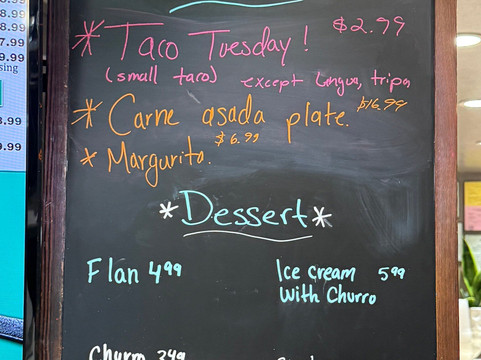 * Taco Tuesday! $2.99
(small taro) except Lengua, tripa
* Carne asada plate. $16.99
* Margurita. $6.99
*Dessert*
Flan 499
Ice cream 599
with Churro
Churro 349
8.99
8.99
7.99
9.99
sing
3.99
9.99